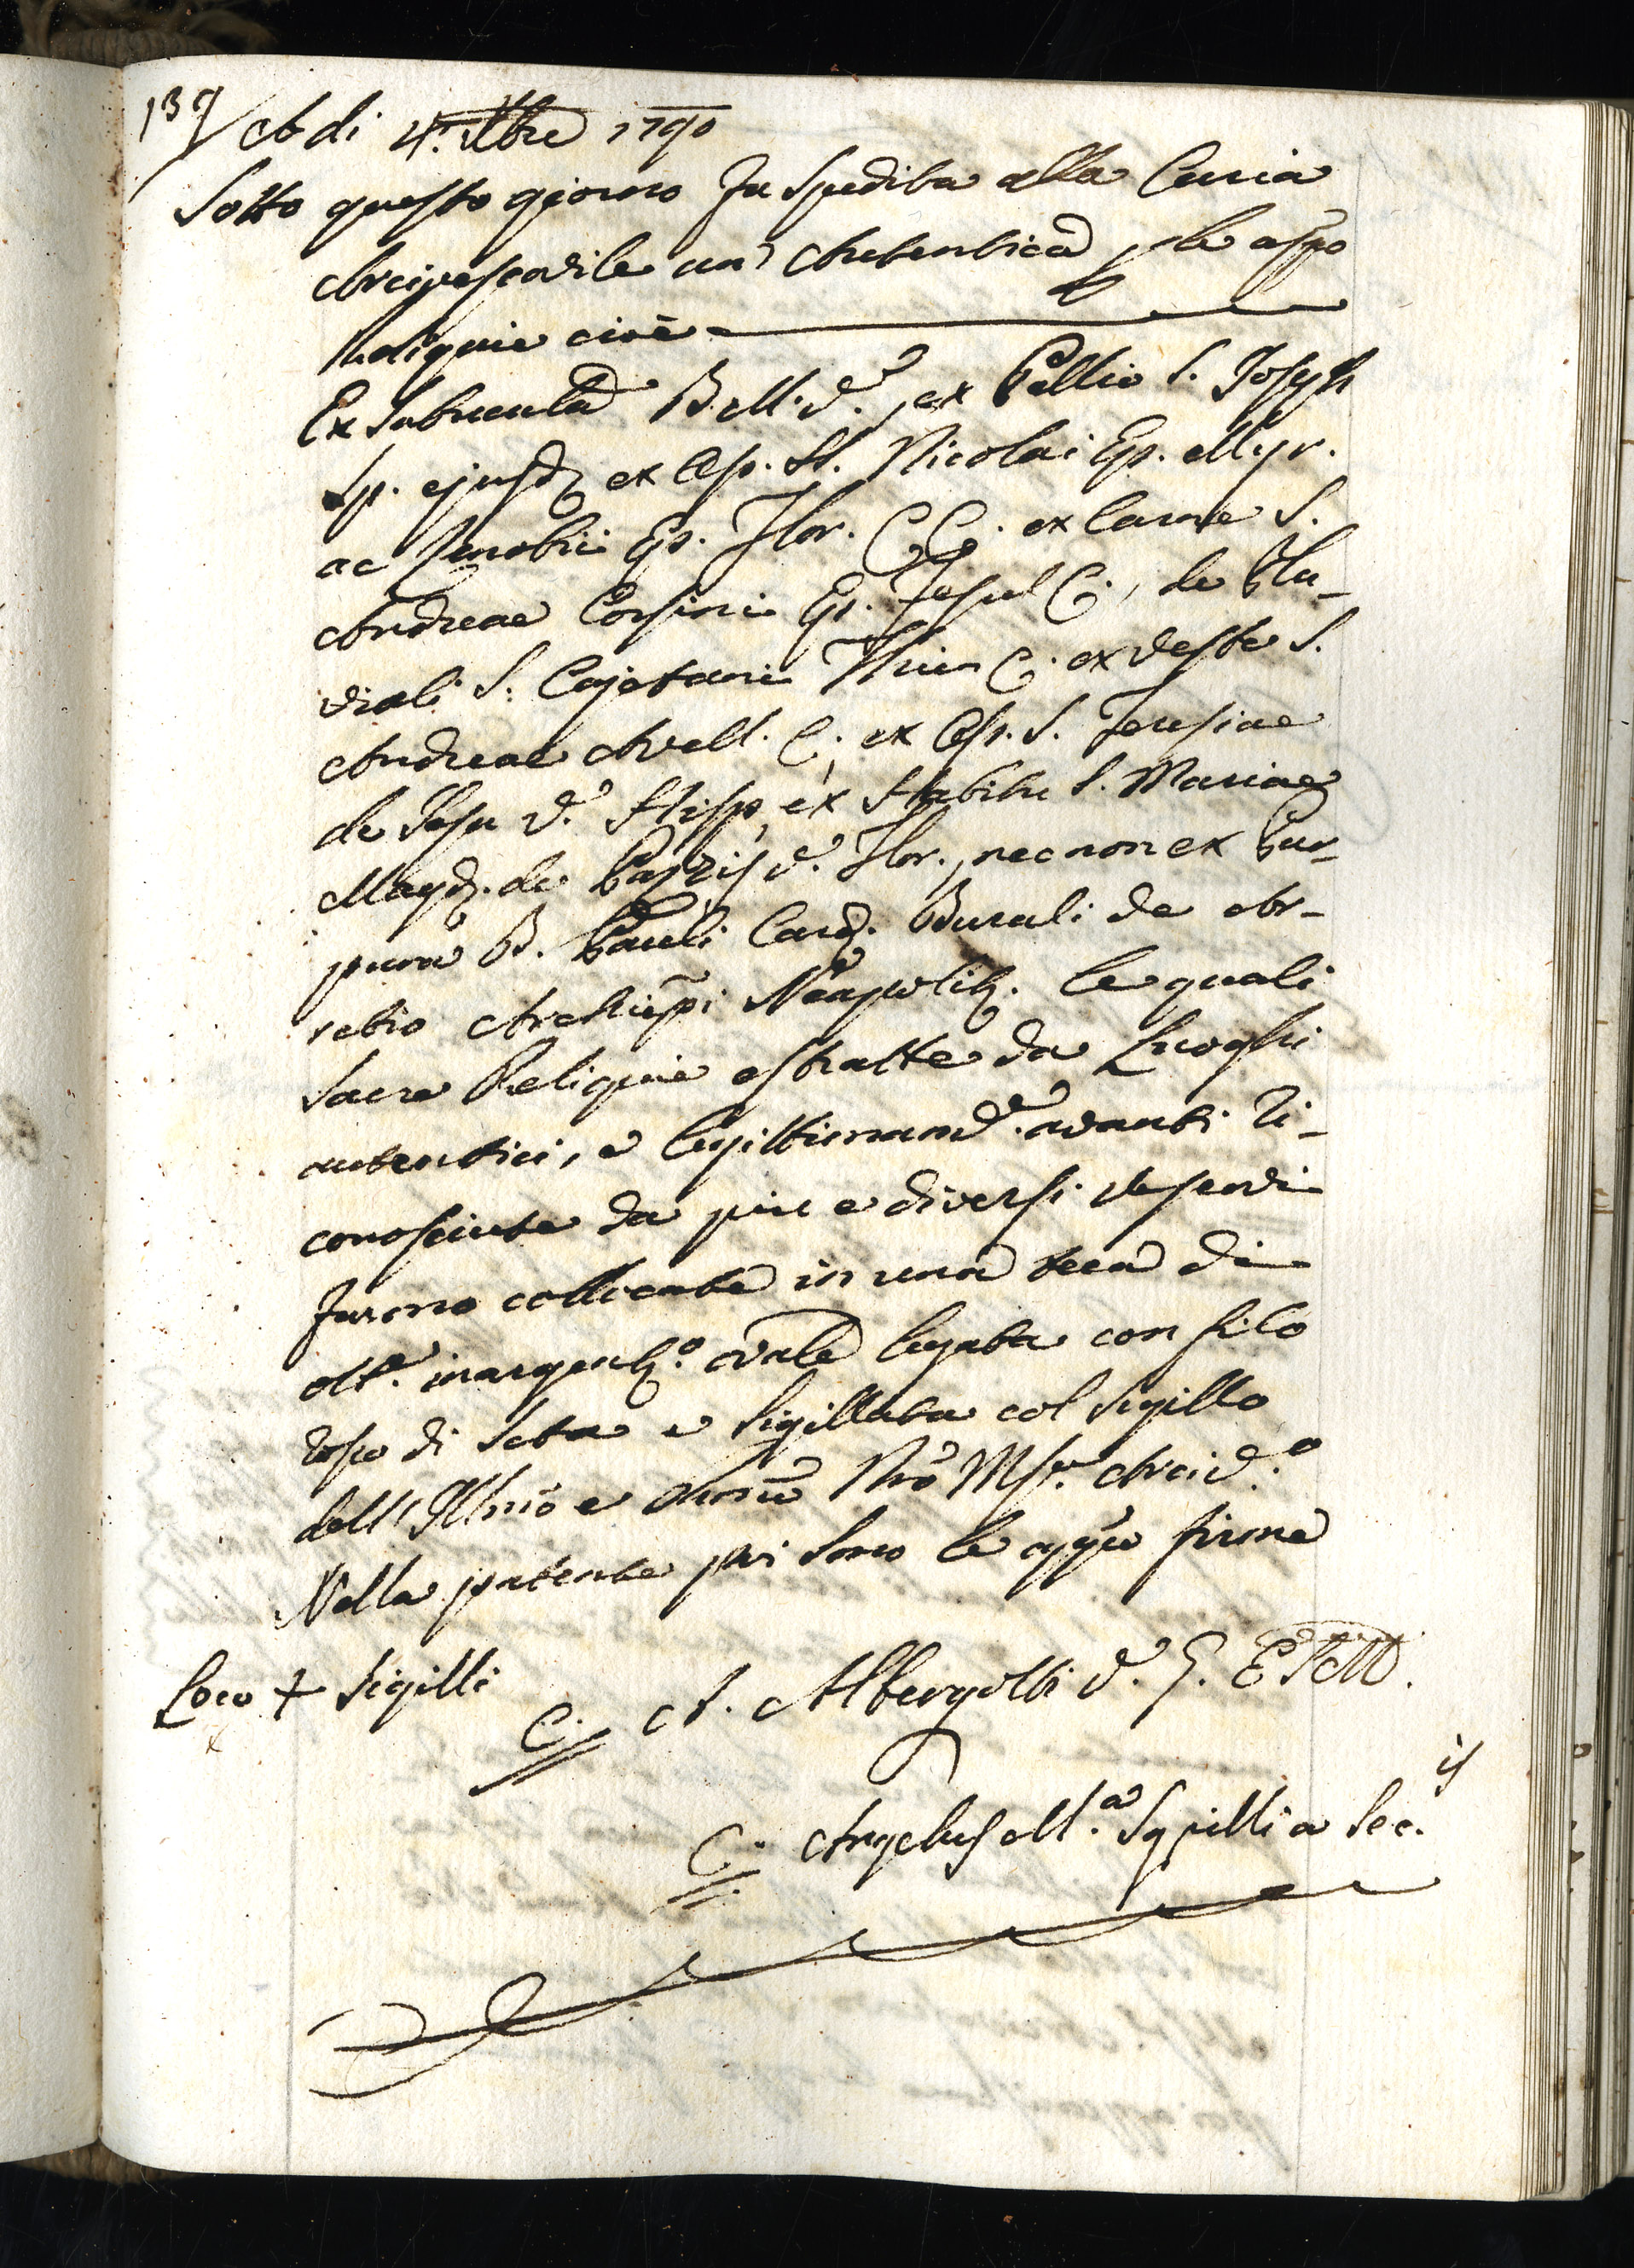 139/ A di 4. Xbre 1790
Sotto questo giorno fu spedita alla Curia
Arcivescovile un' Autentica p le appo
Reliquie cioè
Ex Subucula B.M.V., ex Pallio S. Joseph
Sp. ejusd. ex Oss. SS. Nicolai Ep. Myr.
ac Zenobii Ep. Flor. C.C. ex Carne S.
Andreae Corsini Ep. Fesul C., de Plu-
viali S. Cajetani Thien C. ex Veste S.
Andreae Avell. C. ex Oss. S. Teresiae
de Jesu V. Hisp, ex Habitu S. Mariae
Magd. de Pazzis V. Flor., necnon ex Pur-
pura B. Pauli Card. Burali de Ar-
retio Archiepi Neapolit. le quali
Sacre Reliquie estratte da Luoghi
autentici, e legittimam.e avanti ri-
conosciute da piu e diversi Vescovi
furono collocate in una teca di
ott.e inargent.o ovale legata con filo
rosso di Seta e Sigillata col Sigillo
dell' Illmo e Rmo Nro Msr. Arciv.o
Nella patente poi sono le appo firme
Loco + Sigilli
C. A. Albergotti V. G.
C. Angelus M.a Squilli a Sec.is